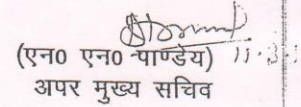 (एन0 एन0 पाण्डेय)
अपर मुख्य सचिव